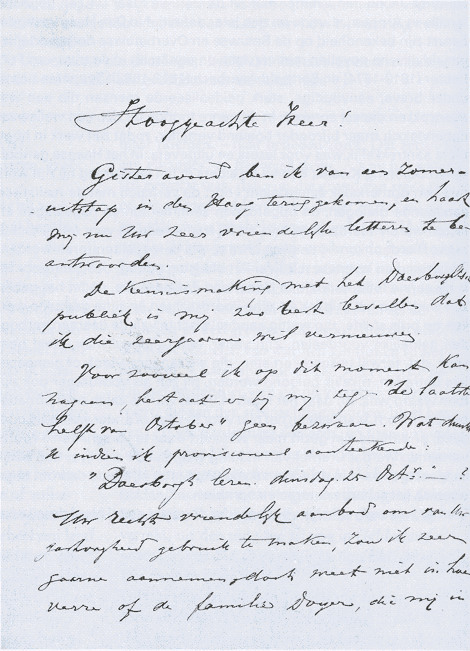 Hooggeachte Heer!
Gister avond ben ik van een Zomer-
uitstap in den Haag teruggekomen, en haast
mij nu Uw zeer vriendelijke letteren te be-
antwoorden.
De Kennismaking met het Doesborgh'sche
publiek is mij zoo best bevallen dat
ik die zeer gaarne wil vernieuwen.
Voor zooveel ik op dit moment kan
nagaan, bestaat er bij mij tegen "de laatste
helft van October" geen bezwaar. Wat dunkt
U indien ik provisioneel aanteekende:
"Doesborgh lezen. dinsdag 25 Octr. — ?
Uw regt vriendelijk aanbod om van Uw
gastvrijheid gebruik te maken, zou ik zeer
gaarne aannemen, doch weet niet in hoe
verre of de familie Doyer, die mij in